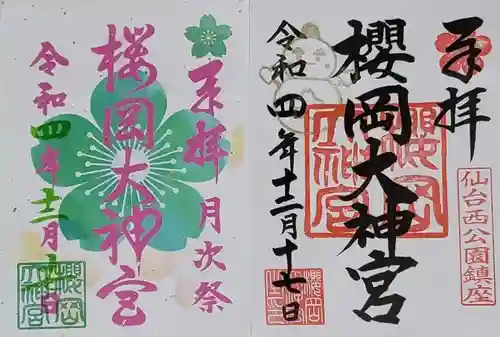 奉拝
仙台西公園鎮座
櫻岡大神宮
櫻岡大神宮
令和四年十二月十七日
櫻岡
奉拝
月次祭
桜岡大神宮
令和四年十二月
日
櫻岡大神宮